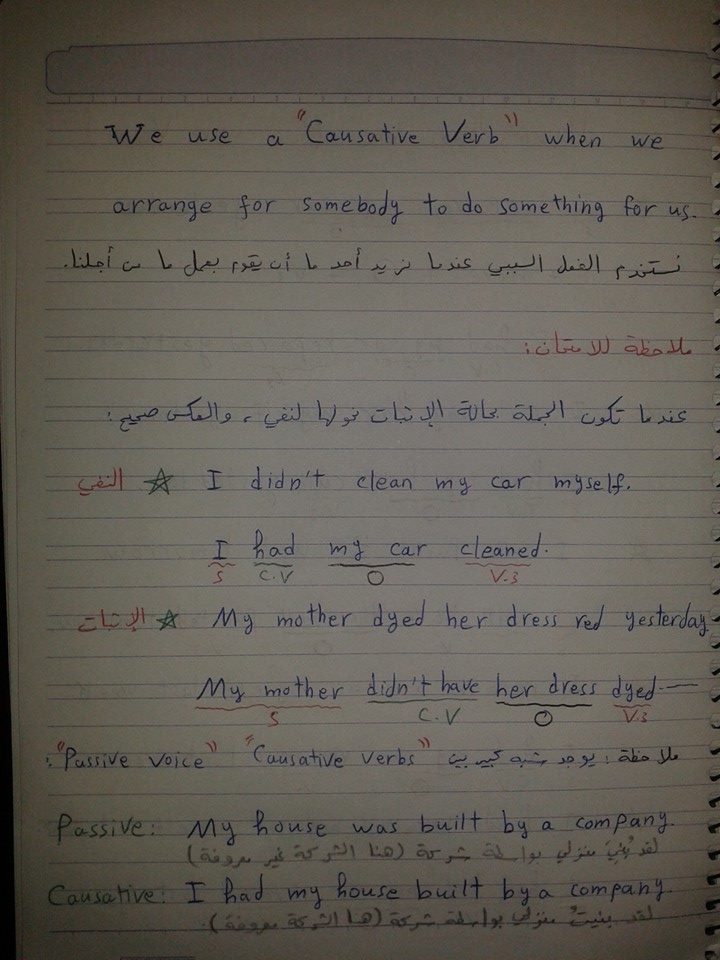 We use a "Causative Verb" when we
arrange for somebody to do something for us.
نستخدم الفعل السببي عندما نريد أحد ما أن يقوم بعمل ما من أجلنا.
ملاحظة للامتحان:
عندما تكون الجملة بحالة الإثبات نحولها لنفي، والعكس صحيح:
النفي ☆ I didn't clean my car myself.
I had my car cleaned.
S C.V O V.3
الإثبات ☆ My mother dyed her dress red yesterday
My mother didn't have her dress dyed—
S C.V O V.3
ملاحظة: يوجد شبه كبير بين "Causative verbs" "Passive voice":
Passive: My house was built by a company.
لقد بُنيَ منزلي بواسطة شركة (هنا الشركة غير معروفة)
Causative: I had my house built by a company.
لقد بنيتُ منزلي بواسطة شركة (هنا الشركة معروفة).